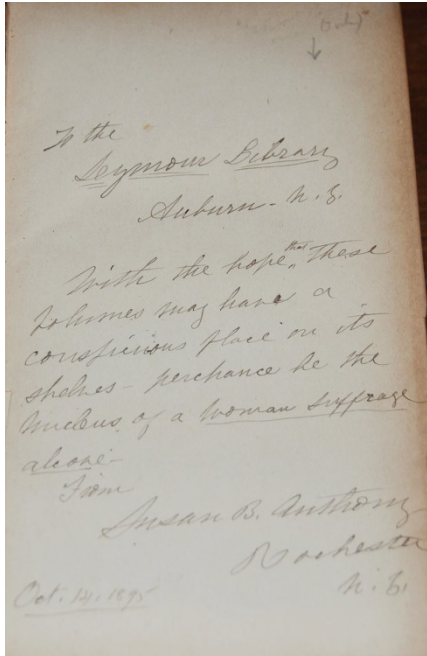 To the
Seymour Library
Auburn - N. Y.
With the hope that these
Volumes may have a
conspicuous place on its
shelves - perchance be the
Nucleus of a Woman Suffrage
alcove -
From
Susan B. Anthony
Rochester
N. Y.
Oct. 14, 1895